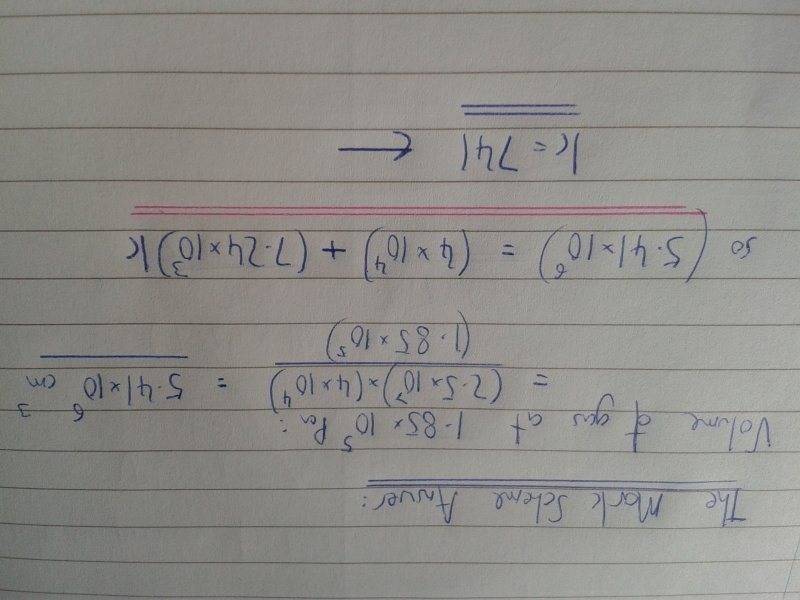 The Mark Scheme Answer:
Volume of gas at 1.85 × 10⁵ Pa:
= (2.5 × 10⁷) × (4 × 10⁴) / (1.85 × 10⁵) = 5.41 × 10⁶ cm³
so (5.41 × 10⁶) = (4 × 10⁴) + (7.24 × 10³) k
k = 741 ←